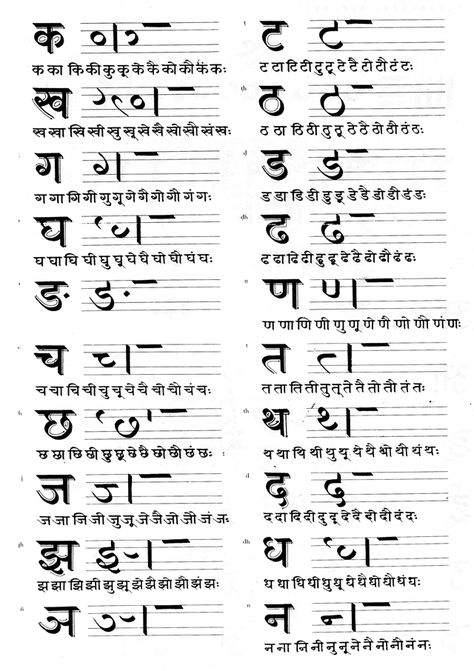 क
क का कि की कु कू के कै को कौ कं कः
ख
ख खा खि खी खु खू खे खै खो खौ खं खः
ग
ग गा गि गी गु गू गे गै गो गौ गं गः
घ
घ घा घि घी घु घू घे घै घो घौ घं घः
ङ
च
च चा चि ची चु चू चे चै चो चौ चं चः
छ
छ छा छि छी छु छू छे छै छो छौ छं छः
ज
ज जा जि जी जु जू जे जै जो जौ जं जः
झ
झ झा झि झी झु झू झे झै झो झौ झं झः
ञ
ट
ट टा टि टी टु टू टे टै टो टौ टं टः
ठ
ठ ठा ठि ठी ठु ठू ठे ठै ठो ठौ ठं ठः
ड
ड डा डि डी डु डू डे डै डो डौ डं डः
ढ
ढ ढा ढि ढी ढु ढू ढे ढै ढो ढौ ढं ढः
ण
ण णा णि णी णु णू णे णै णो णौ णं णः
त
त ता ति ती तु तू ते तै तो तौ तं तः
थ
थ था थि थी थु थू थे थै थो थौ थं थः
द
द दा दि दी दु दू दे दै दो दौ दं दः
ध
ध धा धि धी धु धू धे धै धो धौ धं धः
न
न ना नि नी नु नू ने नै नो नौ नं नः